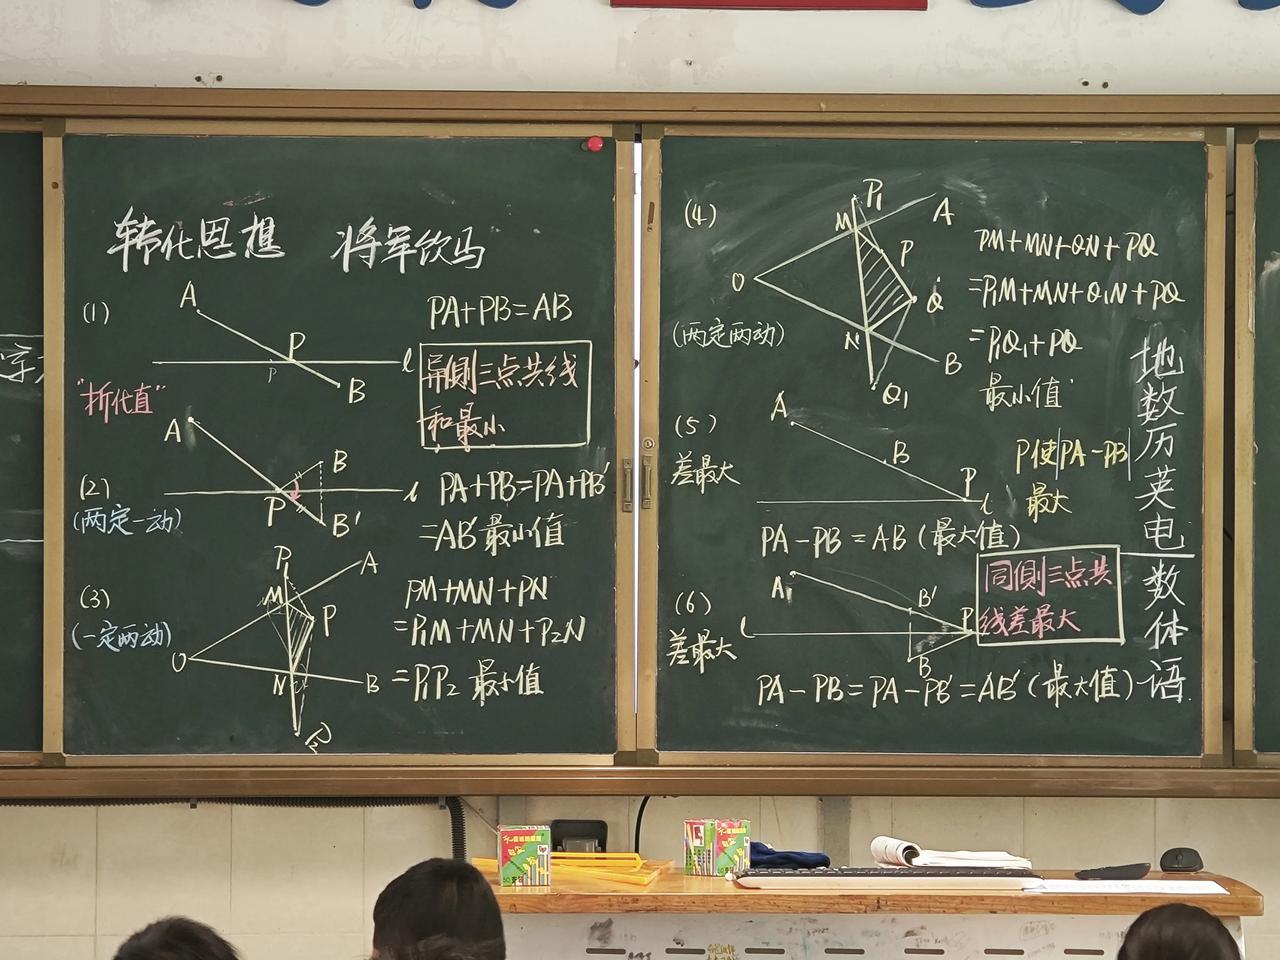 转化思想 将军饮马
(1)
A
P
P
B
l
PA+PB=AB
异侧三点共线
和最小
"折代直"
(2)
(两定一动)
A
B
P
B′
l
PA+PB=PA+PB′
=AB′最小值
(3)
(一定两动)
P₁
A
M
P
O
N
B
P₂
PM+MN+PN
=P₁M+MN+P₂N
=P₁P₂ 最小值
(4)
(两定两动)
P₁
M
A
P
O
Q
N
B
Q₁
PM+MN+QN+PQ
=P₁M+MN+Q₁N+PQ
=P₁Q₁+PQ
最小值
(5)
差最大
A
B
P
l
P使|PA-PB|
最大
PA-PB=AB(最大值)
(6)
差最大
A
B′
P
l
B
同侧三点共
线差最大
PA-PB=PA-PB′=AB′(最大值)
地
数
历
英
电
数
体
语